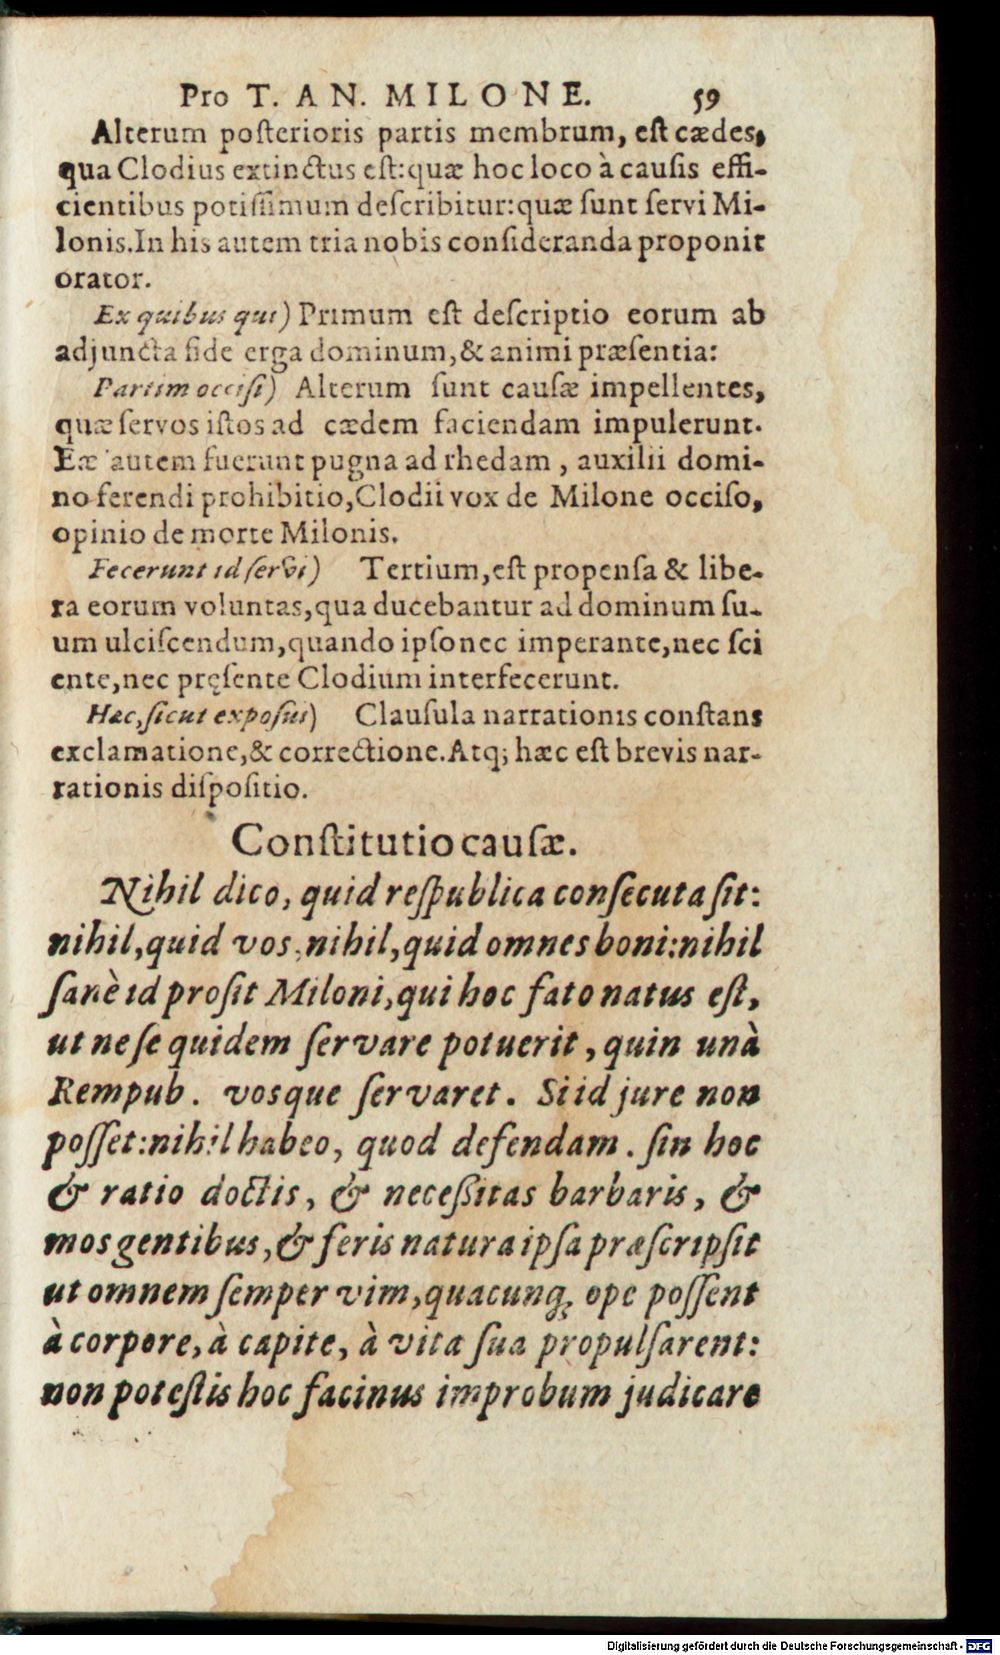 Pro T. AN. MILONE. 59
Alterum posterioris partis membrum, est cædes,
qua Clodius extinctus est:quæ hoc loco à causis effi-
cientibus potissimum describitur:quæ sunt servi Mi-
lonis.In his autem tria nobis consideranda proponit
orator.
Ex quibus qui) Primum est descriptio eorum ab
adjuncta fide erga dominum,& animi præsentia:
Partim occisi) Alterum sunt causæ impellentes,
quæ servos istos ad cædem faciendam impulerunt.
Eæ autem fuerunt pugna ad rhedam, auxilii domi-
no ferendi prohibitio,Clodii vox de Milone occiso,
opinio de morte Milonis.
Fecerunt id servi) Tertium,est propensa & libe-
ra eorum voluntas,qua ducebantur ad dominum su-
um ulciscendum,quando ipso nec imperante,nec sci
ente,nec pręsente Clodium interfecerunt.
Hæc,sicut exposui) Clausula narrationis constans
exclamatione,& correctione.Atq; hæc est brevis nar-
rationis dispositio.
Constitutio causæ.
Nihil dico, quid respublica consecuta sit:
nihil,quid vos, nihil,quid omnes boni:nihil
sanè id prosit Miloni,qui hoc fato natus est,
ut ne se quidem servare potuerit, quin unà
Rempub. vosque servaret. Si id jure non
posset:nihil habeo, quod defendam. sin hoc
& ratio doctis, & necessitas barbaris, &
mos gentibus,& feris natura ipsa præscripsit
ut omnem semper vim,quacunq; ope possent
à corpore, à capite, à vita sua propulsarent:
non potestis hoc facinus improbum judicare
Digitalisierung gefördert durch die Deutsche Forschungsgemeinschaft - DFG